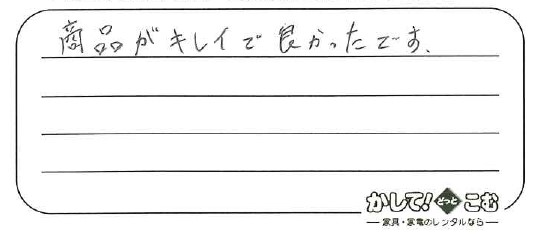 商品がキレイで良かったです.
かして!どっとこむ
家具・家電のレンタルなら